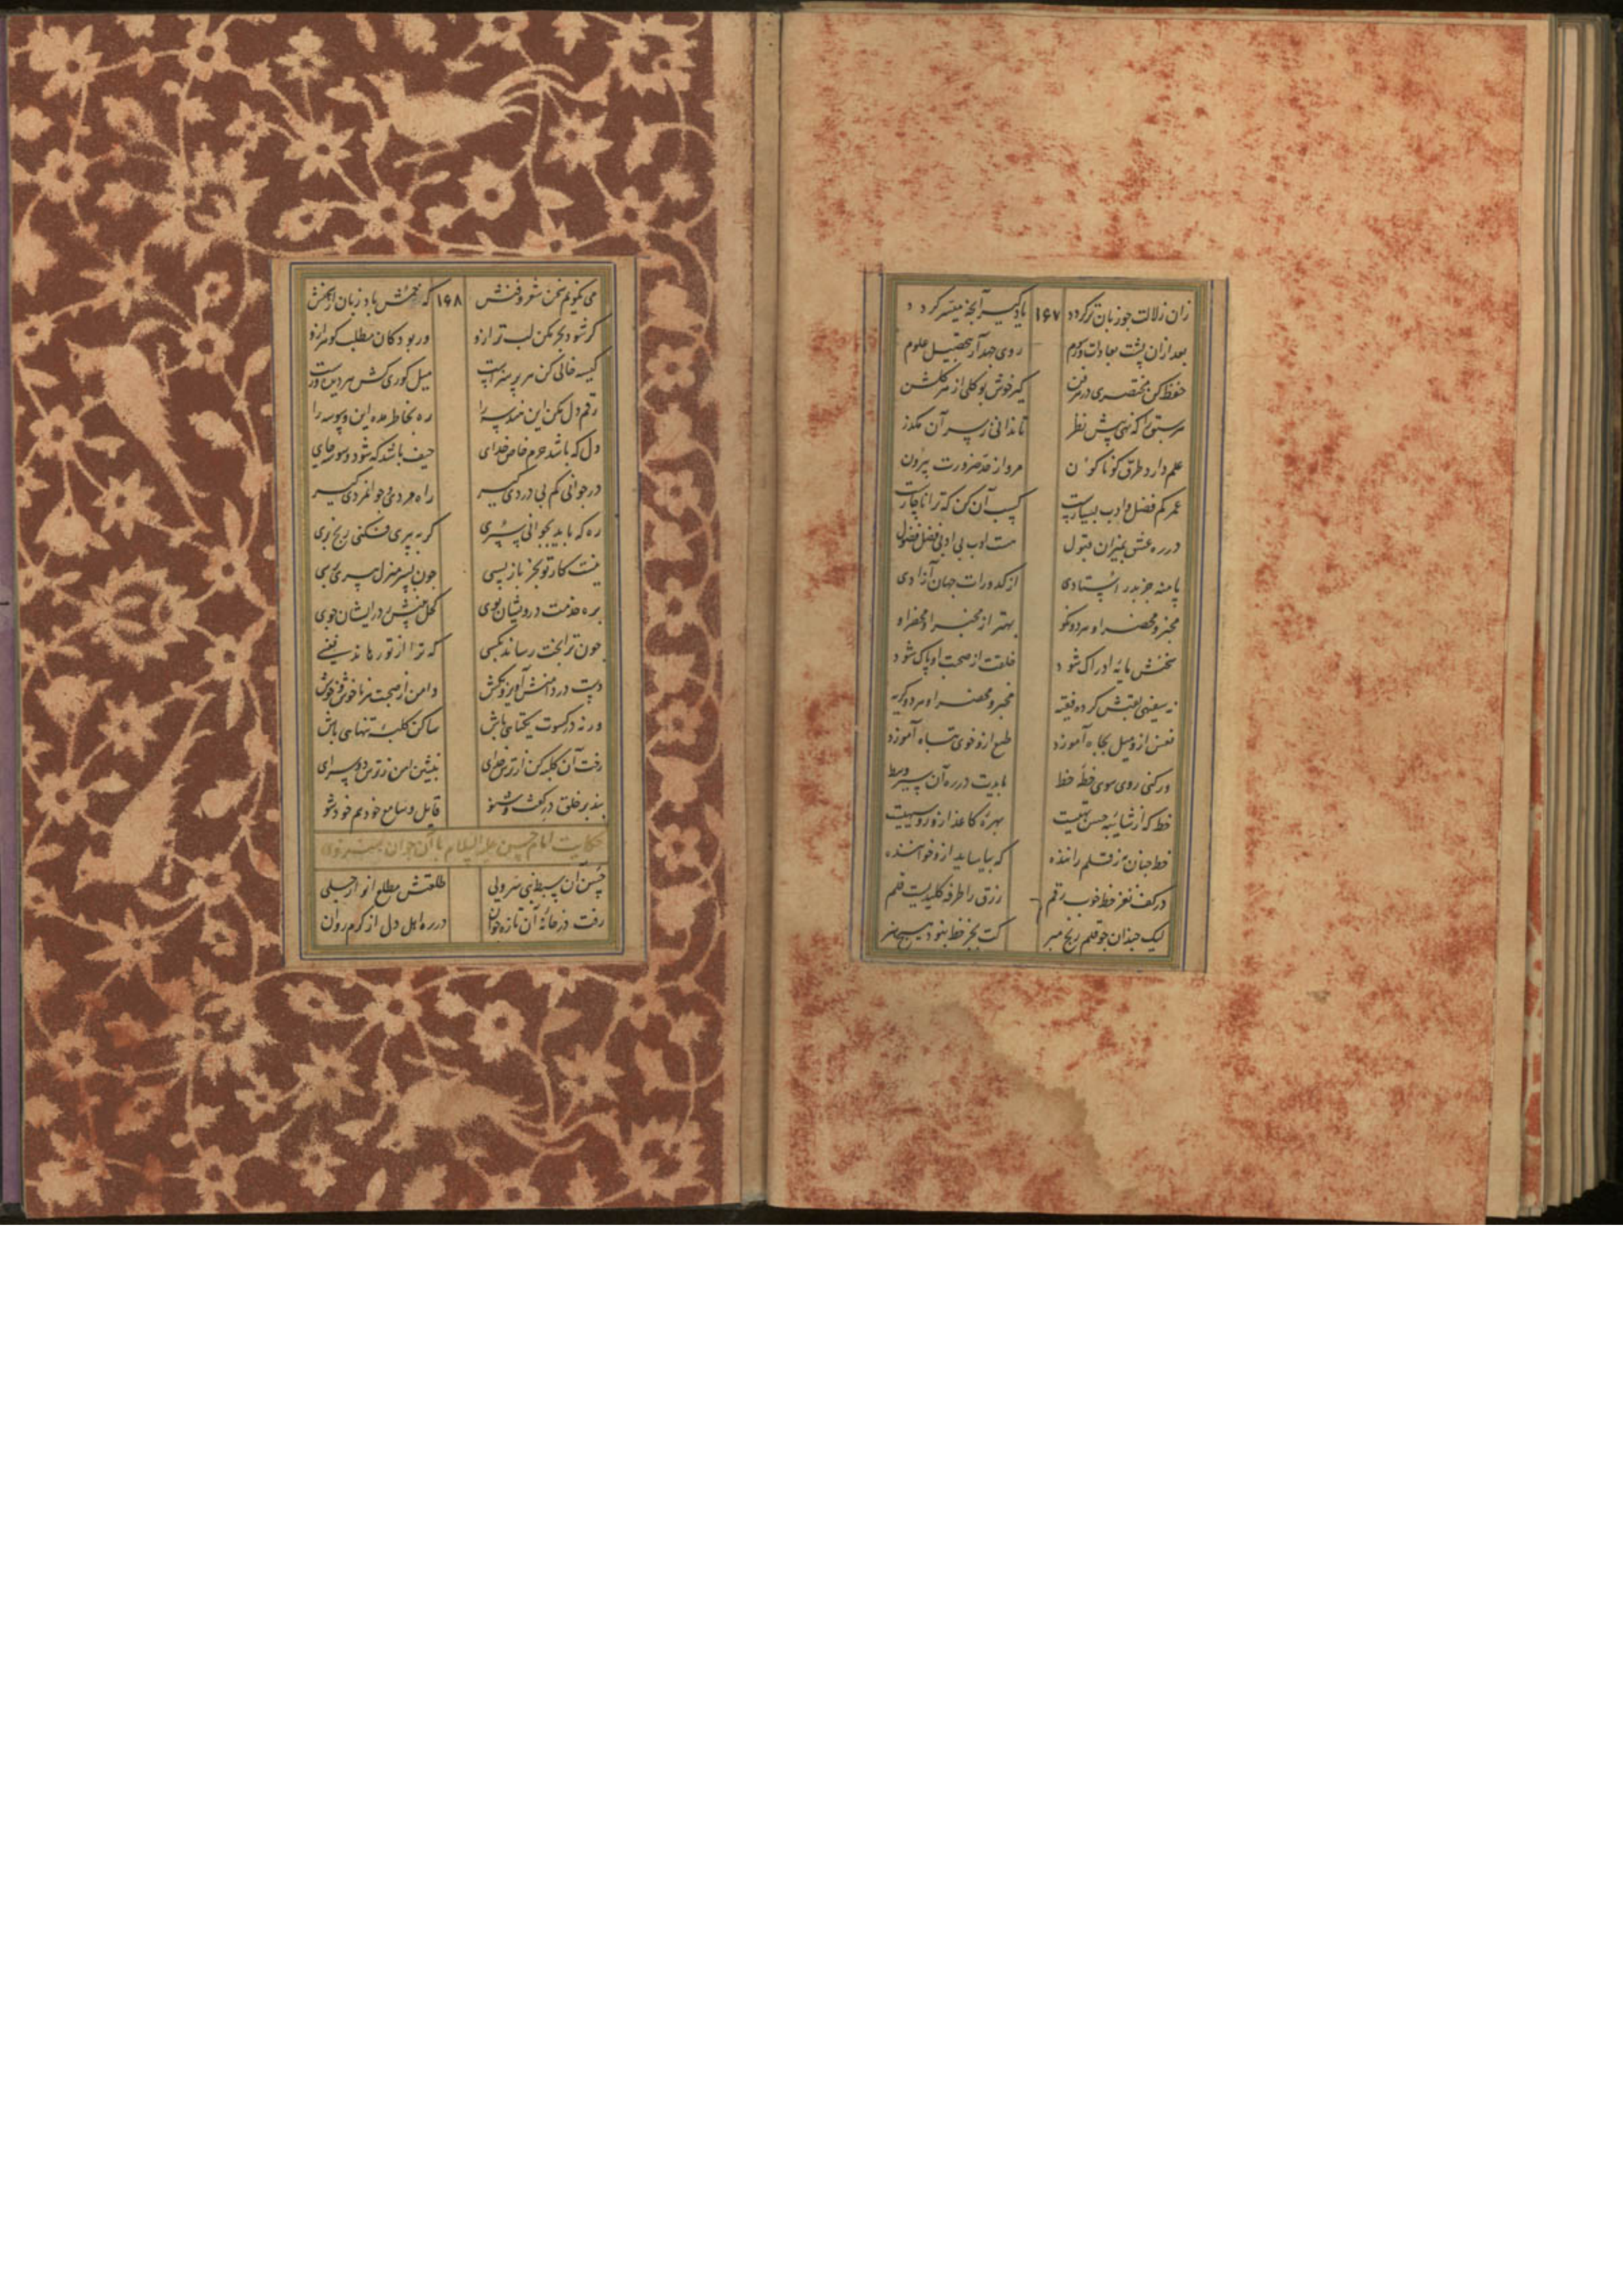 زان زلالت چو زبان تر گردد ۱۶۷ یاد گیر آنچه میسر گردد
بعد ازان پشت بعادات و رسوم روی جهد آر بتحصیل علوم
حفظ کن مختصری در هر فن گیر خوش بو گلی از هر گلشن
هر سبق را که نهی پیش نظر تا ندانی ز سر آن مگذر
علم دارد طرق گوناگون مرو از حد ضرورت بیرون
عمر کم فضل و ادب بسیارست کسب آن کن که ترا ناچارست
در ره عشق بمیزان قبول هست ادب بی ادبی فضل فضول
پا منه جز بدر استادی از کدورات جهان آزادی
مخبر و محضر او هر دو نکو بهتر از مخبر او محضر او
سخنش مایه ادراک شود خلقت از صحبت او پاک شود
نه سفیهی لقبش کرده فقیه مخبر و محضر او هر دو کریه
نفس ازو میل بجاه آموزد طبع ازو خوی تباه آموزد
ور کنی روی سوی خطه خط بایدت در ره آن سیر وسط
خط که از شائبه حسن تهیست بهره کاغذ ازو روسیهیست
خط چنان به ز قلم راننده که بیاساید ازو خواننده
در کف نغز خط خوب رقم رزق را طرفه کلیدیست قلم
لیک چندان چو قلم رنج مبر کت بجز خط نبود هیچ هنر
می نگویم سخن شعر و فنش ۱۶۸ که باد زبان از سخنش
گر شود بحر مکن لب تر ازو ور بود کان مطلب گوهر ازو
کیسه خالی کن هر پر هنرست میل کوری کش هر دیده‌ورست
رقم دل مکن این هندسه را ره بخاطر مده این وسوسه را
دل که باشد حرم خاص خدای حیف باشد که شود وسوسه جای
در جوانی کم بی دردی گیر راه مردی و جوانمردی گیر
ره که باید بجوانی سپری گر به پیری فکنی رنج بری
چون بسر منزل پیری برسی نیست کار تو بجز بازپسی
بره خدمت درویشان پوی کحل بینش ز در ایشان جوی
چون ترا بخت رساند بکسی که ترا از تو رهاند نفسی
دست در دامنش آویز و بکش دامن از صحبت هر ناخوش و خوش
ورنه در کسوت یکتایی باش ساکن کلبه تنهایی باش
رخت آن کلبه کن از ترس خدای بنشین امن ز ترس دو سرای
بند بر خلق در گفت و شنو قایل و سامع خود هم خود شو
حکایت امام حسین علیه السلام با آن جوان
حسن آن سبط نبی سر ولی طلعتش مطلع انوار جلی
رفت در خانه آن تازه جوان در ره اهل دل از گرم روان